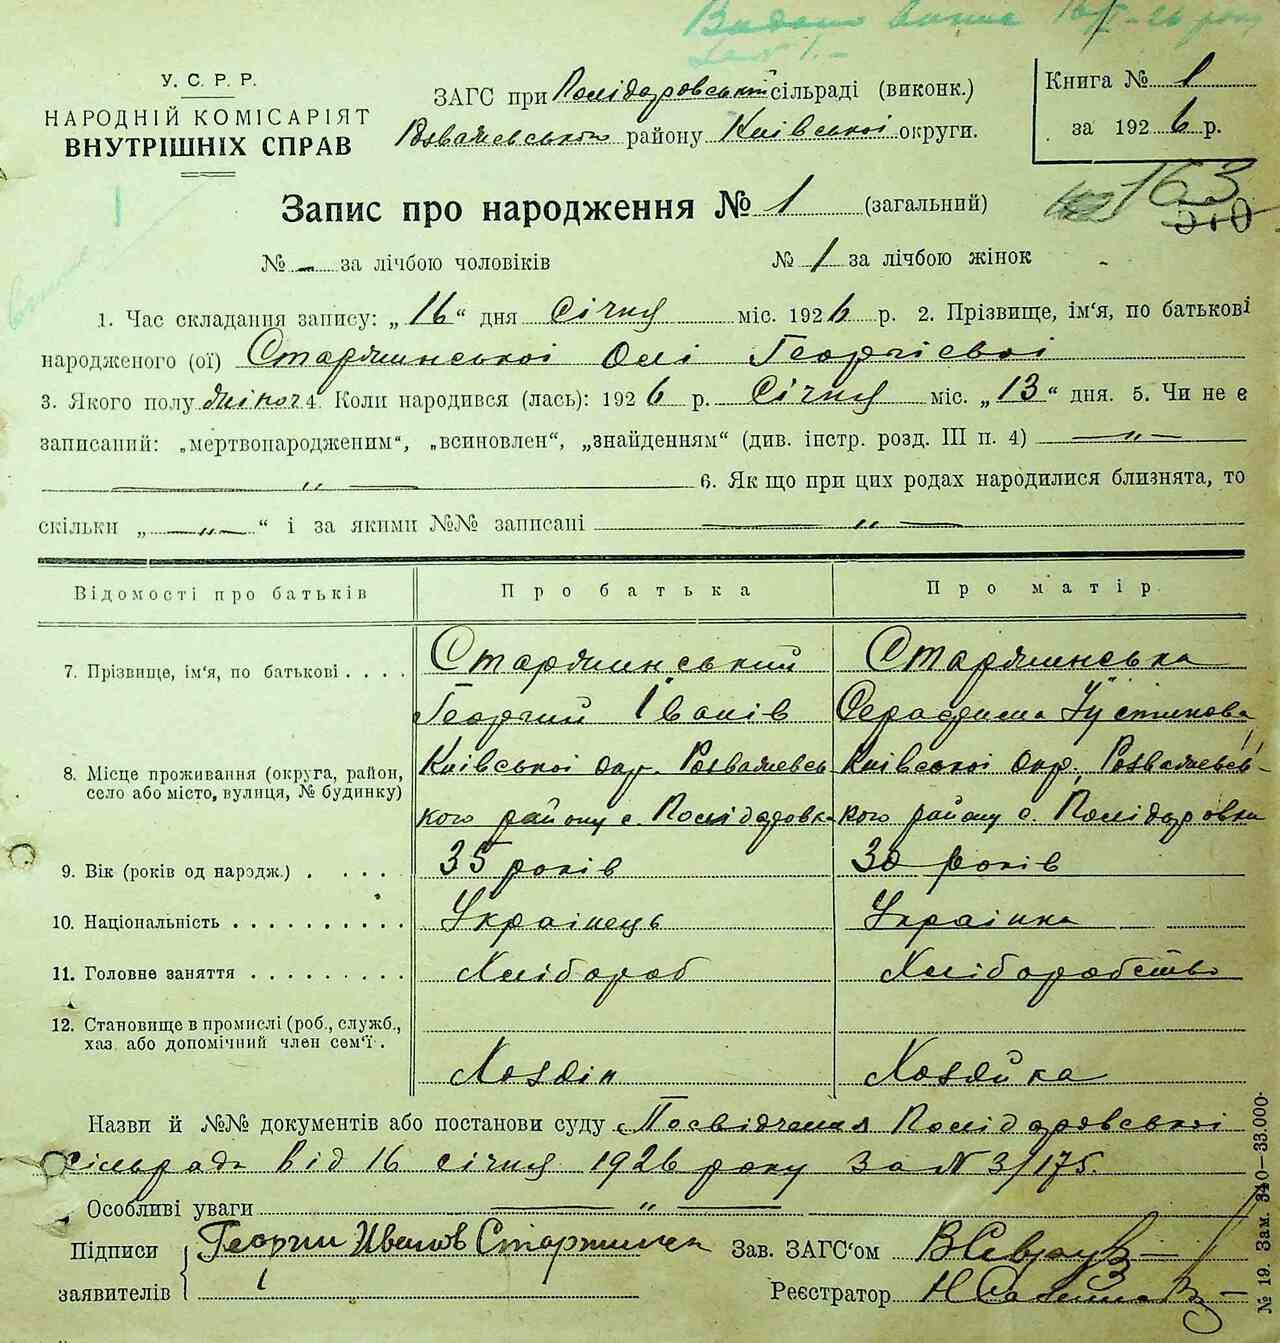 Видано 16/ 26 року
У. С. Р. Р.
НАРОДНІЙ КОМІСАРІЯТ
ВНУТРІШНІХ СПРАВ
ЗАГС при сільраді (виконк.)
району Київської округи.
Книга № 1
за 1926 р.
163
310
Запис про народження № 1 (загальний)
№ — за лічбою чоловіків № 1 за лічбою жінок
1. Час складання запису: „16“ дня Січня міс. 1926 р. 2. Прізвище, ім‘я, по батькові
народженого (ої) Олі Георгієвої
3. Якого полу жіноч 4. Коли народився (лась): 1926 р. Січня міс. „13“ дня. 5. Чи не є
записаний: „мертвонародженим“, „всиновлен“, „знайденням“ (див. інстр. розд. III п. 4) — „ —
— „ — 6. Як що при цих родах народилися близнята, то
скільки „— „ —“ і за якими №№ записані — „ —
Відомості про батьків Про батька Про матір
7. Прізвище, ім‘я, по батькові . . . .
Георгий Іванів
Устинова
8. Місце проживання (округа, район,
село або місто, вулиця, № будинку)
Київської окр. Розважевсь- Київської окр. Розважевсь-
кого району с. кого району с.
9. Вік (років од народж.) . . . . 35 років 30 років
10. Національність . . . . . . . . . . Українець Українка
11. Головне заняття . . . . . . . . . Хлібороб Хліборобство
12. Становище в промислі (роб., служб.,
хаз. або допомічний член сем‘ї .
Хозяін Хозяйка
Назви й №№ документів або постанови суду Посвідчення
сільради від 16 січня 1926 року за N 3/175.
Особливі уваги — „ —
Підписи Георгий Иванов Зав. ЗАГС‘ом
заявителів Реєстратор
№ 19. Зам. 340—33.000·